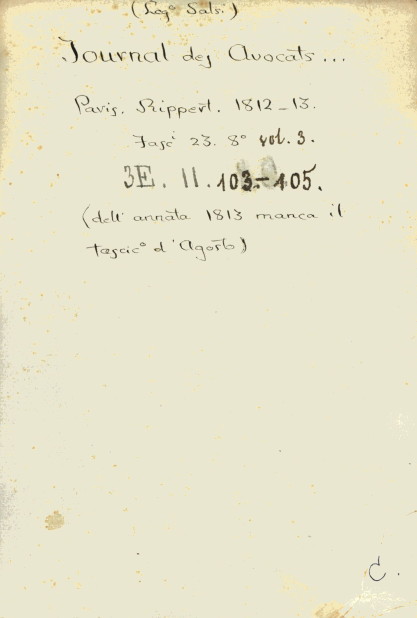 (Leg° Sals.)
Journal des Avocats...
Paris. Rippert. 1812-13.
Fasc¹ 23. 8° vol. 3.
3E. II. 103-105.
(dell' annata 1813 manca il
fascic° d'Agosto)
C.